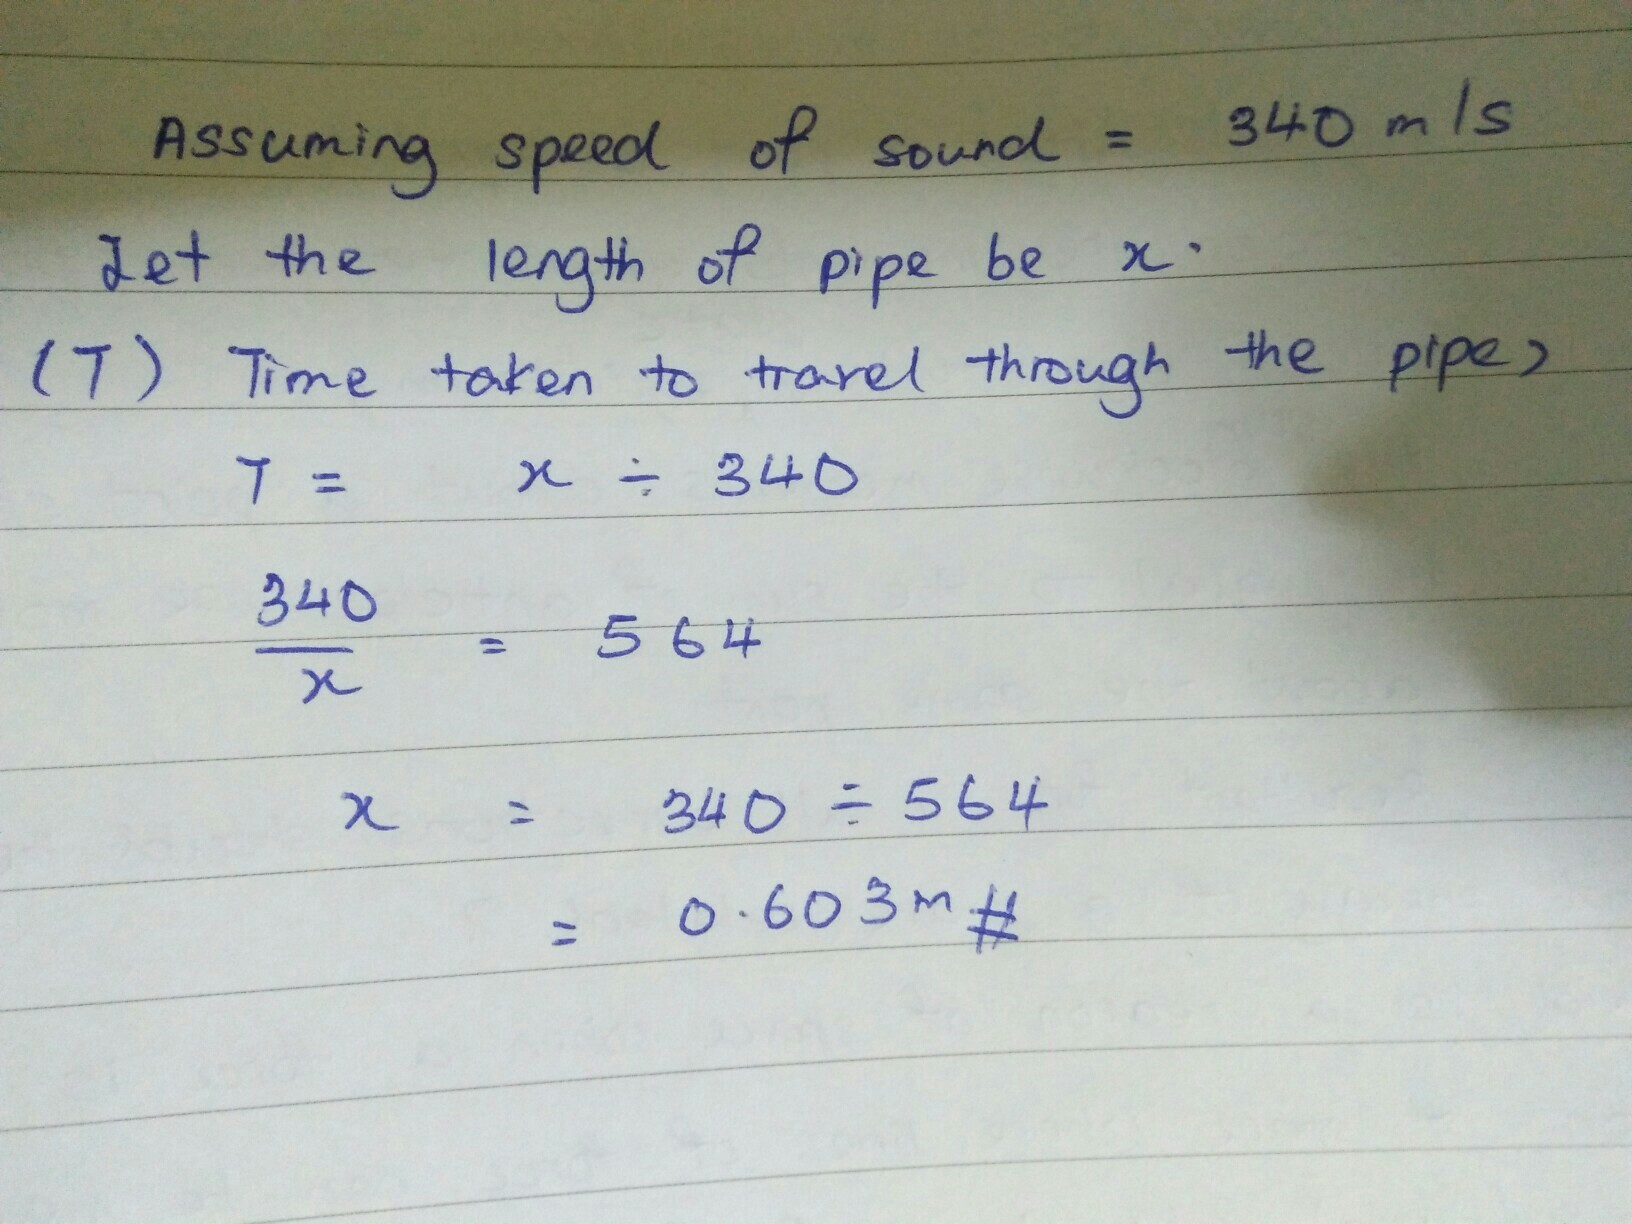 Assuming speed of sound = 340 m/s
Let the length of pipe be x.
(T) Time taken to travel through the pipe,
T = x ÷ 340
340
/x = 564
x = 340 ÷ 564
= 0.603m #